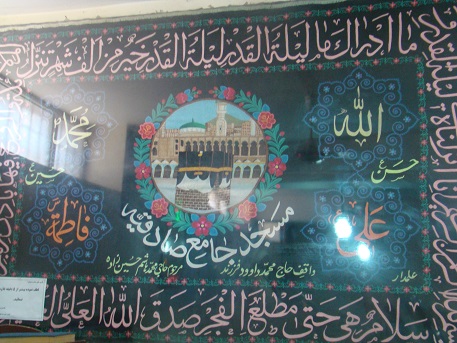 ما ادراك ما ليلة القدر ليلة القدر خير من الف شهر تنزل
الله
محمد
حسن ع
حسین ع
علی
فاطمة
مسجد جامع صادقیه
واقف حاج محمد داوود فرزند
مرحوم حاجی محمد هاشم حسین زاده
علمدار
سلام هي حتى مطلع الفجر صدق الله العلي العظيم